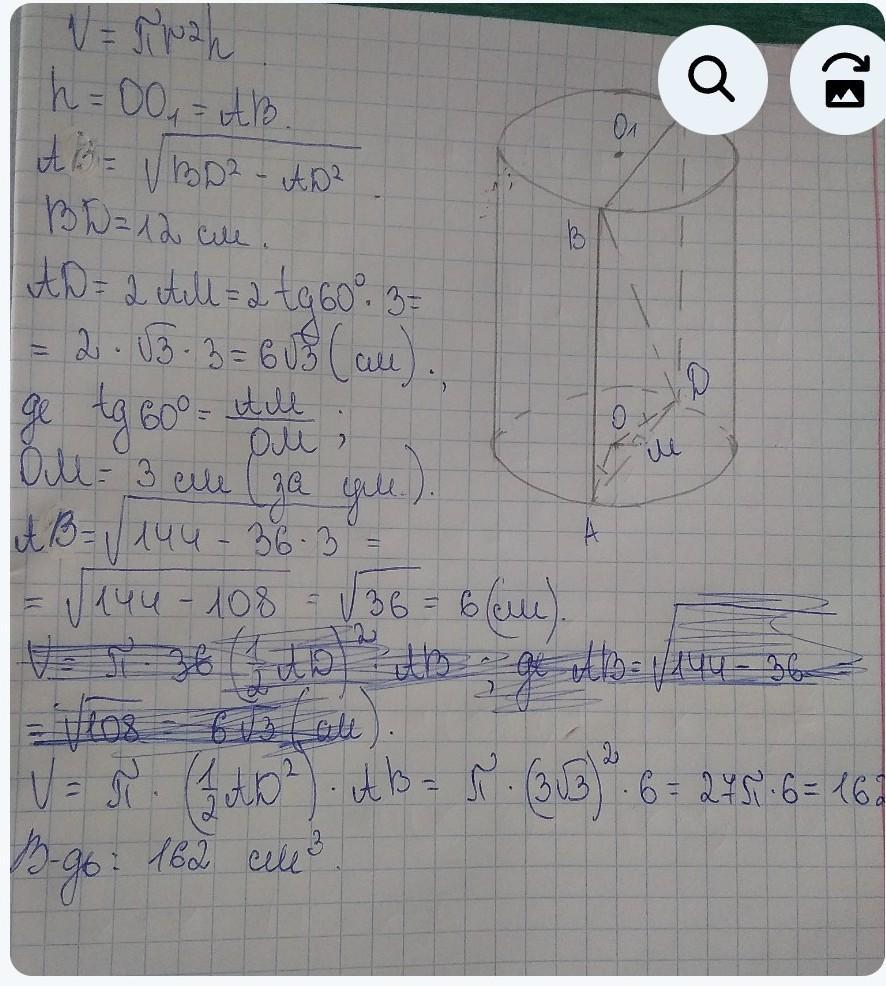 V = πr²h
h = OO₁ = AB.
AB = √(BD² - AD²).
BD = 12 см.
AD = 2 AM = 2 tg60° · 3 =
= 2 · √3 · 3 = 6√3 (см).,
де tg60° = AM/OM ;
OM = 3 см (за ум.).
AB = √(144 - 36 · 3) =
= √(144 - 108) = √36 = 6 (см).
V = π · 36 (1/2 AD)² · AB ; де AB = √(144 - 36) =
= √108 = 6√3 (см).
V = π · (1/2 AD²) · AB = π · (3√3)² · 6 = 27π · 6 = 162
В-дь: 162 см³.
O₁
B
D
O
M
A